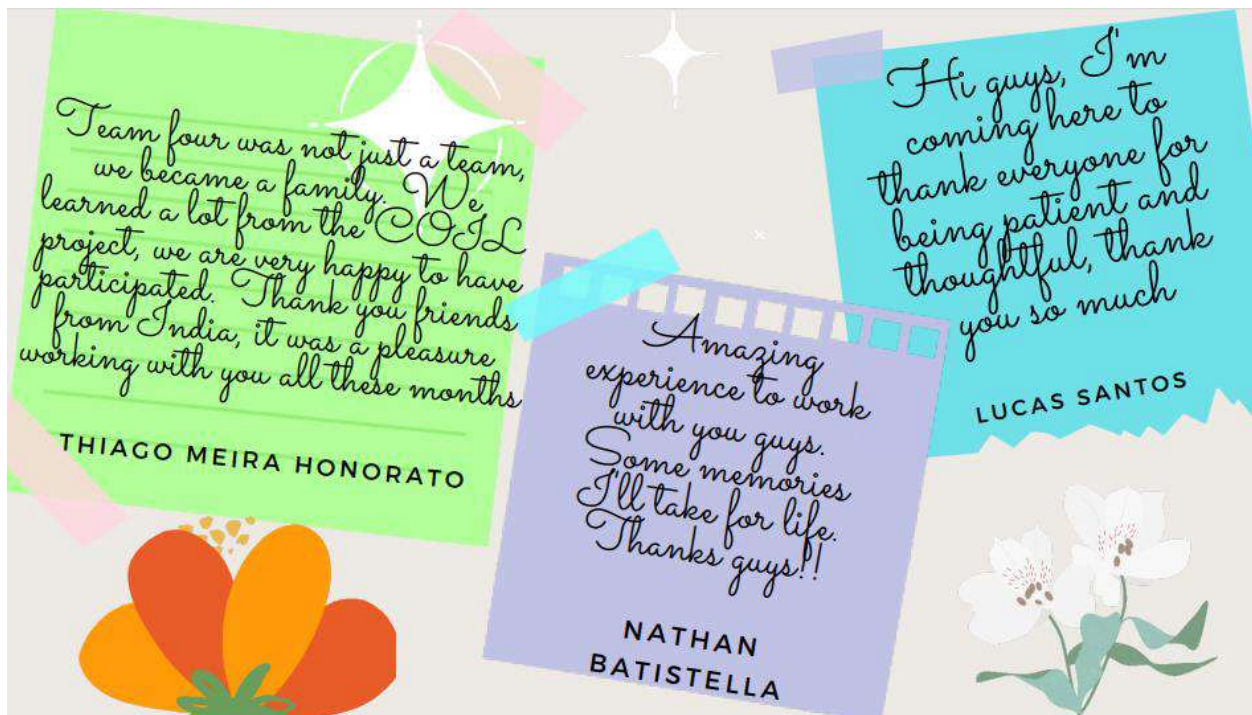 Team four was not just a team,
we became a family. We
learned a lot from the COIL
project, we are very happy to have
participated. Thank you friends
from India, it was a pleasure
working with you all these months
THIAGO MEIRA HONORATO
Amazing
experience to work
with you guys.
Some memories
I'll take for life.
Thanks guys!!
NATHAN
BATISTELLA
Hi guys, I'm
coming here to
thank everyone for
being patient and
thoughtful, thank
you so much
LUCAS SANTOS